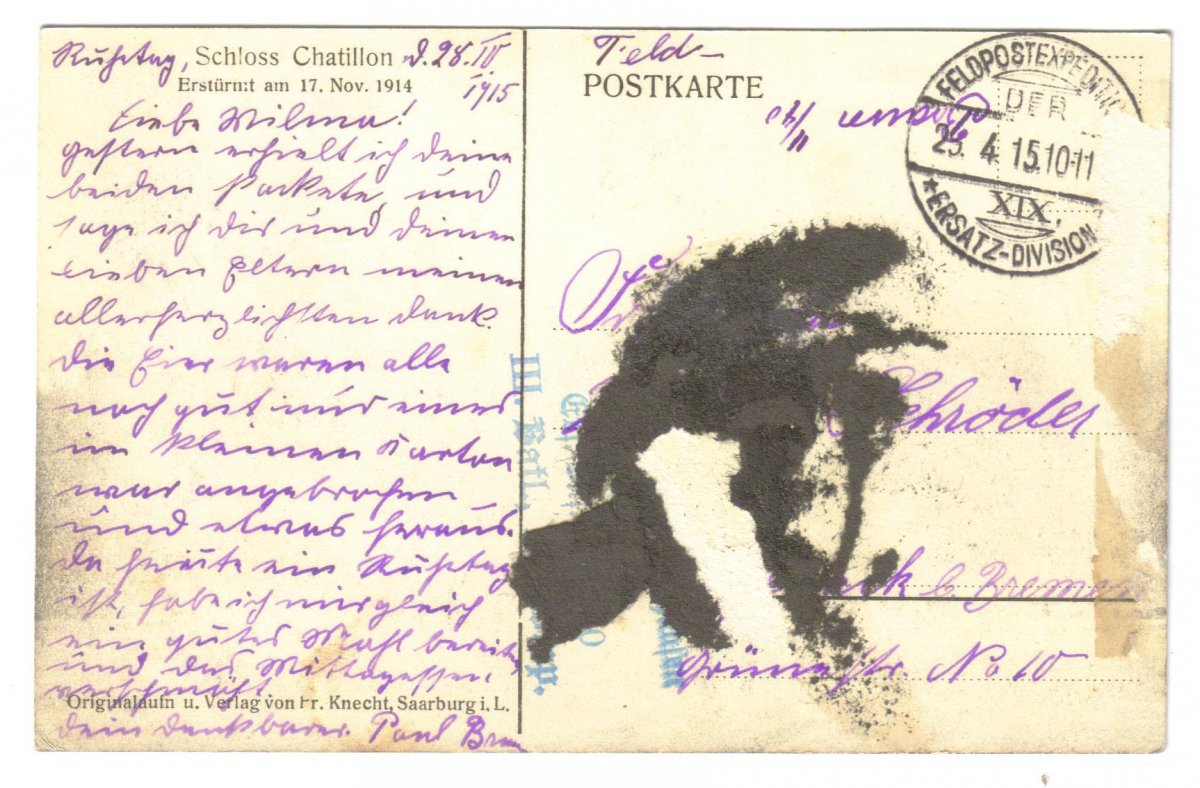 Ruhetag, Schloss Chatillon d. 28. IV
Erstürmt am 17. Nov. 1914
1915
Liebe Wilma!
gestern erhielt ich deine
beiden Packete, und
sage ich dir und deinen
lieben Eltern meinen
allerherzlichsten Dank.
Die Eier waren alle
noch gut nur eines
im kleinen Karton
war angebrochen
und etwas heraus.
Da heute ein Ruhetag
ist, habe ich mir gleich
ein gutes Mahl bereitet
und das Mittagessen
verschmäht.
Originalaufn u. Verlag von Fr. Knecht, Saarburg i. L.
dein dankbarer Paul
Feld-
POSTKARTE
FELDPOSTEXPEDITION
DER
29. 4. 15. 10-11
XIX.
* ERSATZ-DIVISION
III. Batl.
Schröder
b. Bremen
Grünestr. No 10